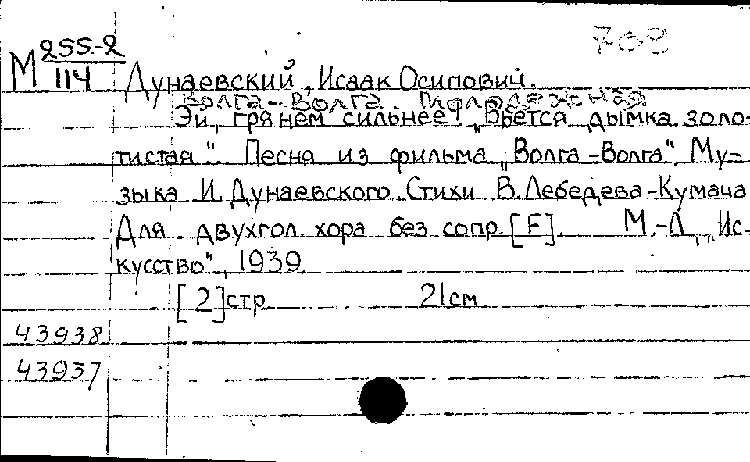 703
М 255-2
114
Дунаевский, Исаак Осипович.
Волга-Волга. Молодежная
Эй, грянем сильнее! „Вьется дымка золо-
тистая". Песна из фильма „Волга-Волга". Му-
зыка И. Дунаевского. Стихи В. Лебедева-Кумача
Для двухгол. хора без сопр. [F]. М.-Л., „Ис-
кусство", 1939.
[2] стр. 21 см.
43938
43937